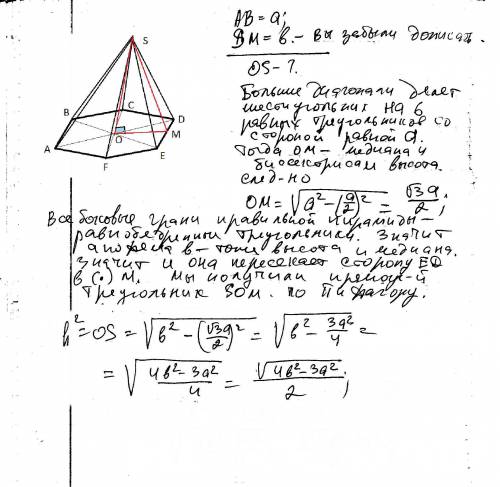 S
B
C
D
M
O
A
E
F
AB = a;
BM = b. - вы забыли дописать.
OS - ?
Большие диагонали делят
шестиугольник на 6
равных треугольников со
стороной равной a.
Тогда OM - медиана и
биссектриса и высота.
след-но
OM = √(a² - (a/2)²) = √3a/2;
Все боковые грани правильной пирамиды -
равнобедренные треугольники. Значит
апофема b - тоже высота и медиана.
Значит и она пересекает сторону ED
в (·) M. Мы получили прямоуг-й
треугольник SOM. по Пифагору.
h² = OS = √(b² - (√3a/2)²) = √(b² - 3a²/4) =
= √((4b² - 3a²)/4) = √(4b² - 3a²)/2;